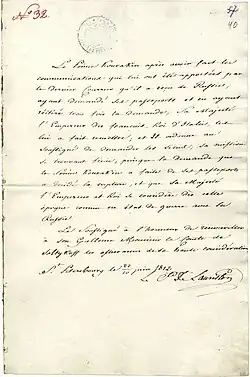 No 32.
40
Le Prince Kourakin après avoir fait les
communications qui lui ont été apportées par
le dernier Courrier qu'il a reçu de Russie,
ayant demandé ses passeports et en ayant
réitéré trois fois la demande, Sa Majesté
l'Empereur des français, Roi d'Italie, les
lui a fait remettre, et Il ordonne au
Soussigné de demander les siens, sa mission
se trouvant finie, puisque la demande que
le Prince Kourakin a faite de ses passeports
a décidé la rupture, et que Sa Majesté
l'Empereur et Roi se considère dès cette
époque comme en état de guerre avec la
Russie.
Le Soussigné a l'honneur de renouveller
à son Excellence Monsieur le Comte de
Soltykoff les assurances de sa haute considération
St. Petersbourg le 22/10 juin 1812.
Lauriston